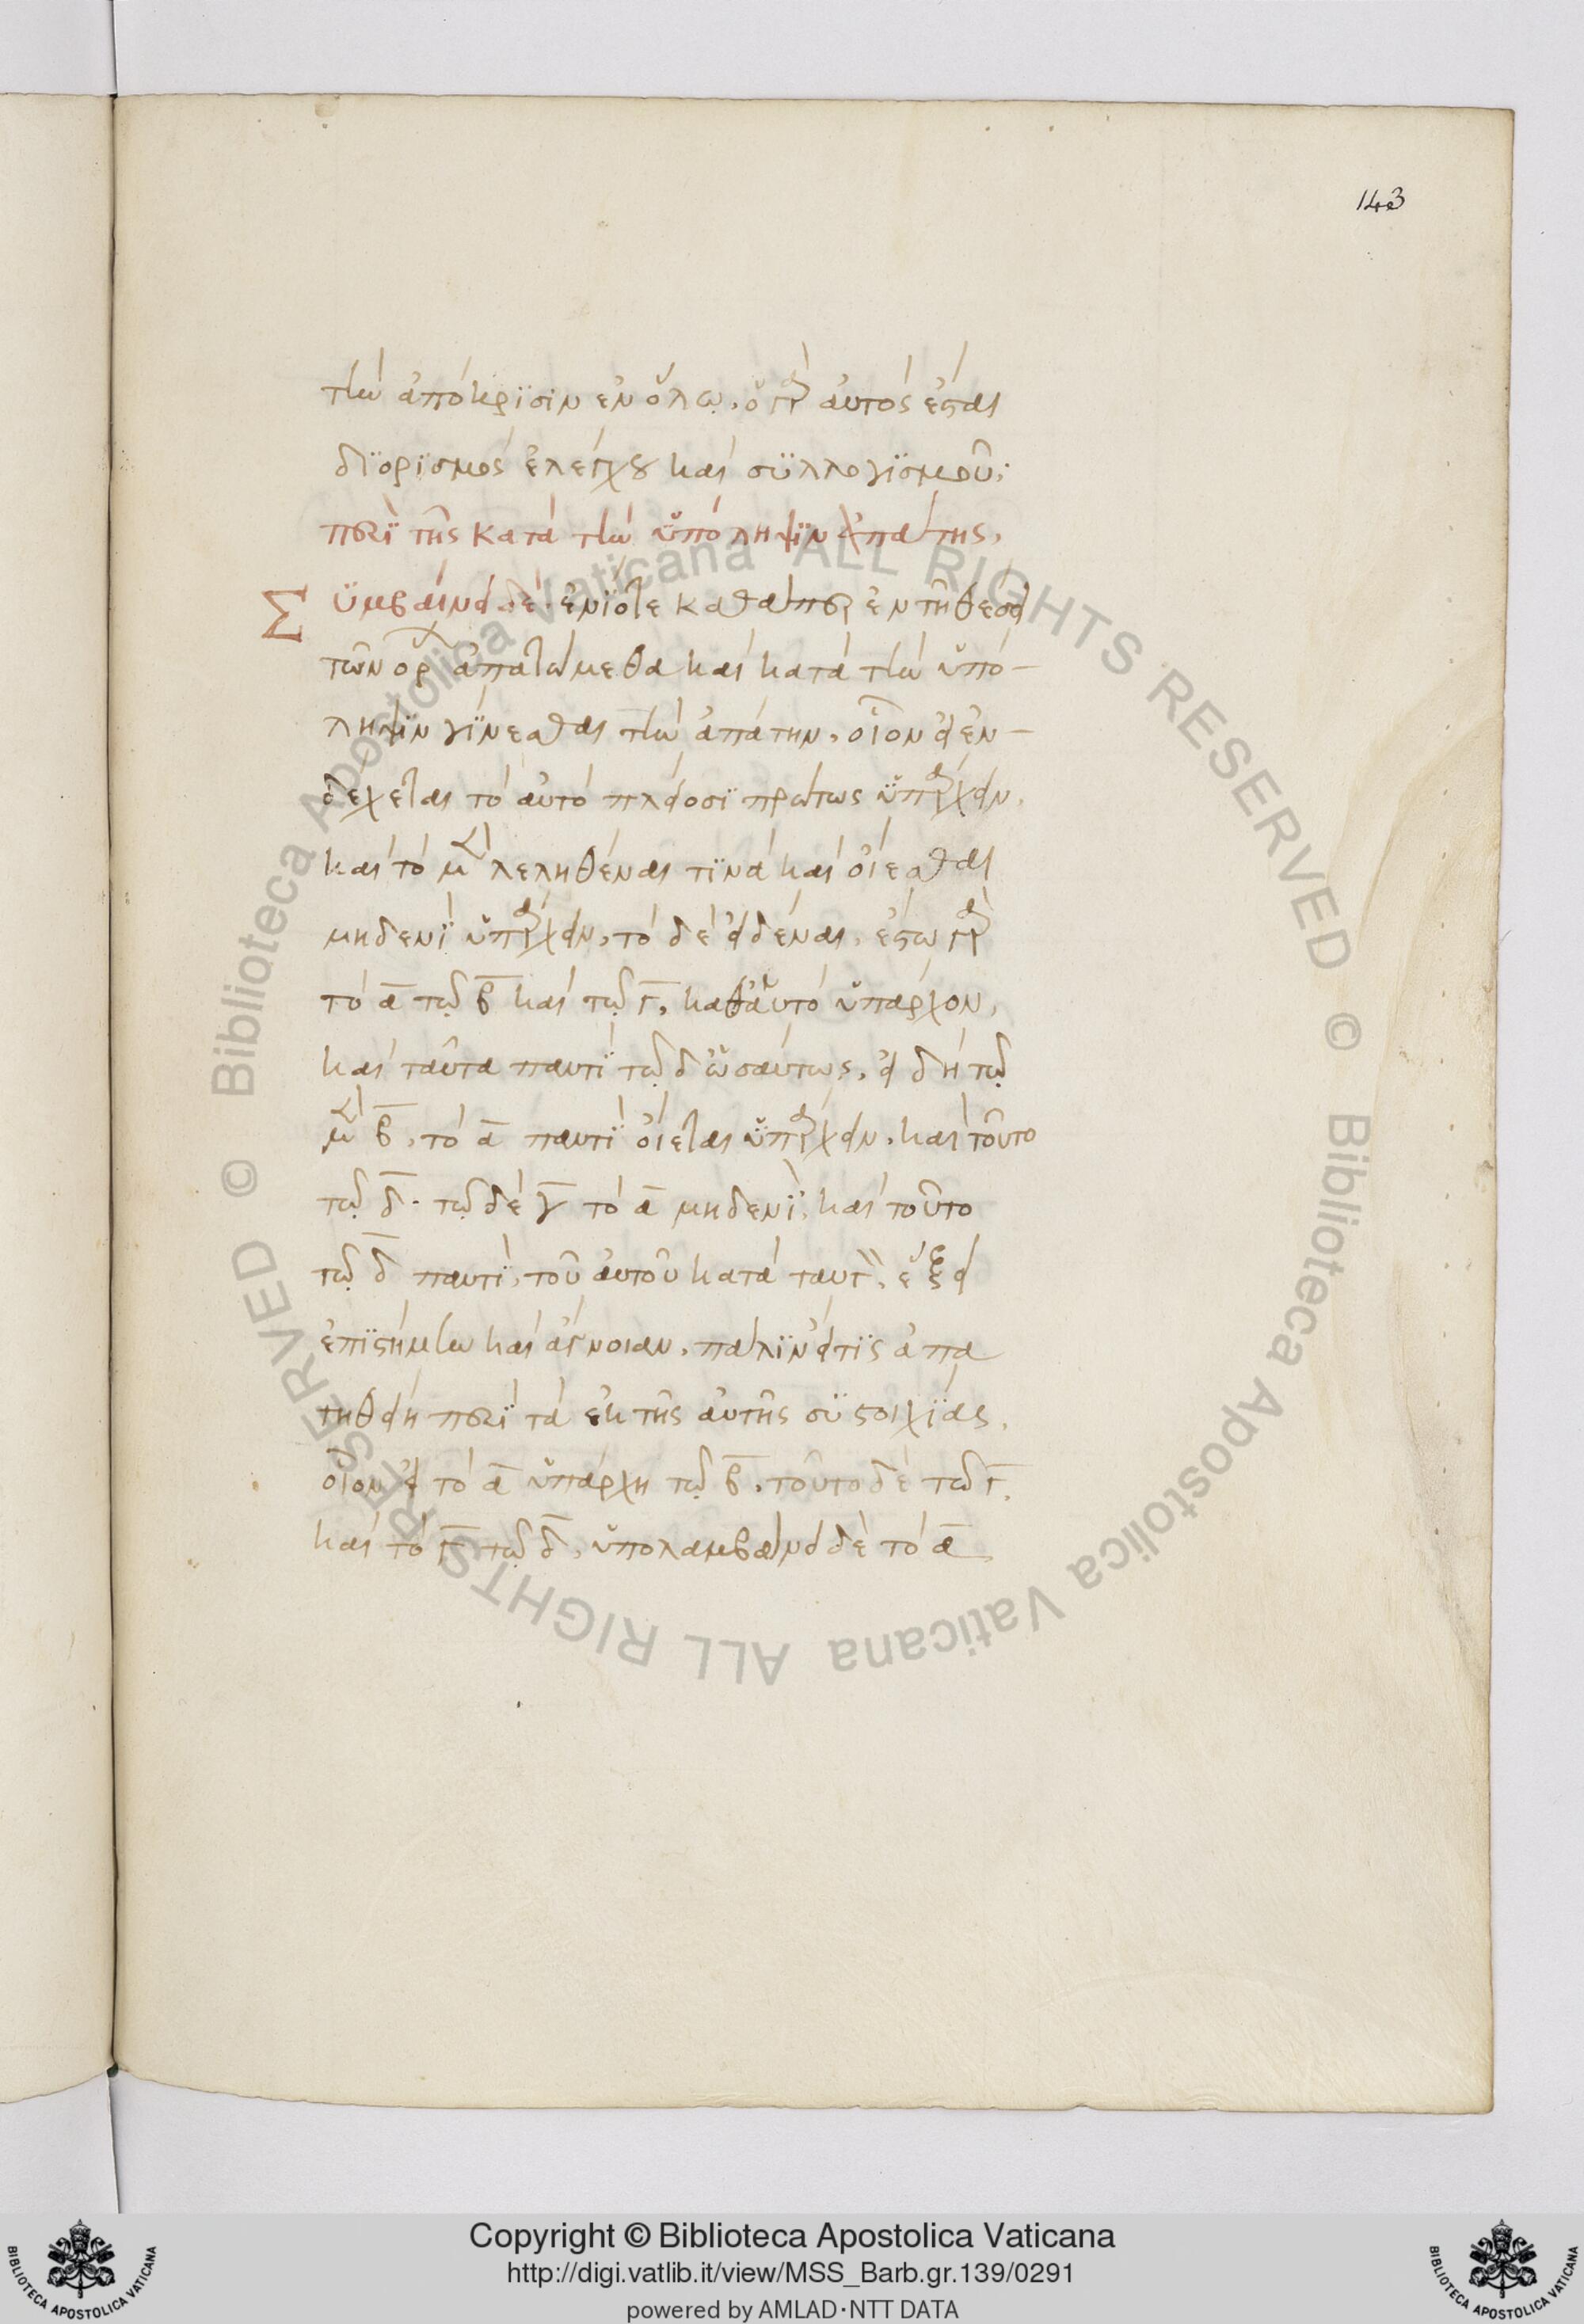 143
τὴν ἀπόκρϊσιν ἐν ὅλῳ. ὁ γὰρ αὐτὸς ἔσται
δϊορϊσμὸς ἐλέγχου καὶ σϋλλογϊσμοῦ:
περὶ τῆς κατὰ τὴν ὑπόληψϊν ἀπάτης.
Σϋμβαίνει δὲ ἐνϊότε καθάπερ ἐν τῆ θέσει
τῶν ὅρων ἀπατώμεθα καὶ κατὰ τὴν ὑπό-
ληψϊν γίνεσθαι τὴν ἀπάτην. οἷον εἰ ἐν-
δέχεται τὸ αὐτὸ πλείοσϊ πρώτως ὑπάρχειν.
καὶ τὸ μὲν λεληθέναι τϊνὰ καὶ οἴεσθαι
μηδενὶ ὑπάρχειν, τὸ δὲ εἰδέναι. ἔστω γὰρ
τὸ α̅ τῷ β̅ καὶ τῷ γ̅, καθ' αὑτὸ ὑπάρχον,
καὶ ταῦτα παντὶ τῷ δ ὡσαύτως. εἰ δὴ τῷ
μὲν β̅. τὸ α̅ παντὶ οἴεται ὑπάρχειν. καὶ τοῦτο
τῷ δ̅. τῷ δὲ γ̅ τὸ α̅ μηδενὶ, καὶ τοῦτο
τῷ δ̅ παντὶ, τοῦ αὐτοῦ κατὰ ταυτὸν, ἕξει
ἐπϊστήμην καὶ ἄγνοιαν. πάλϊν εἴ τϊς ἀπα
τηθείη περὶ τὰ ἐκ τῆς αὐτῆς σϋστοιχϊας.
οἷον εἰ τὸ α̅ ὑπάρχη τῷ β̅. τοῦτο δὲ τῷ γ̅.
καὶ τὸ γ̅ τῷ δ̅, ὑπολαμβάνει δὲ τὸ α̅
© Biblioteca Apostolica Vaticana ALL RIGHTS RESERVED © Biblioteca Apostolica Vaticana ALL RIGHTS RESERVED
Copyright © Biblioteca Apostolica Vaticana
http://digi.vatlib.it/view/MSS_Barb.gr.139/0291
powered by AMLAD·NTT DATA
BIBLIOTECA APOSTOLICA VATICANA
BIBLIOTECA APOSTOLICA VATICANA